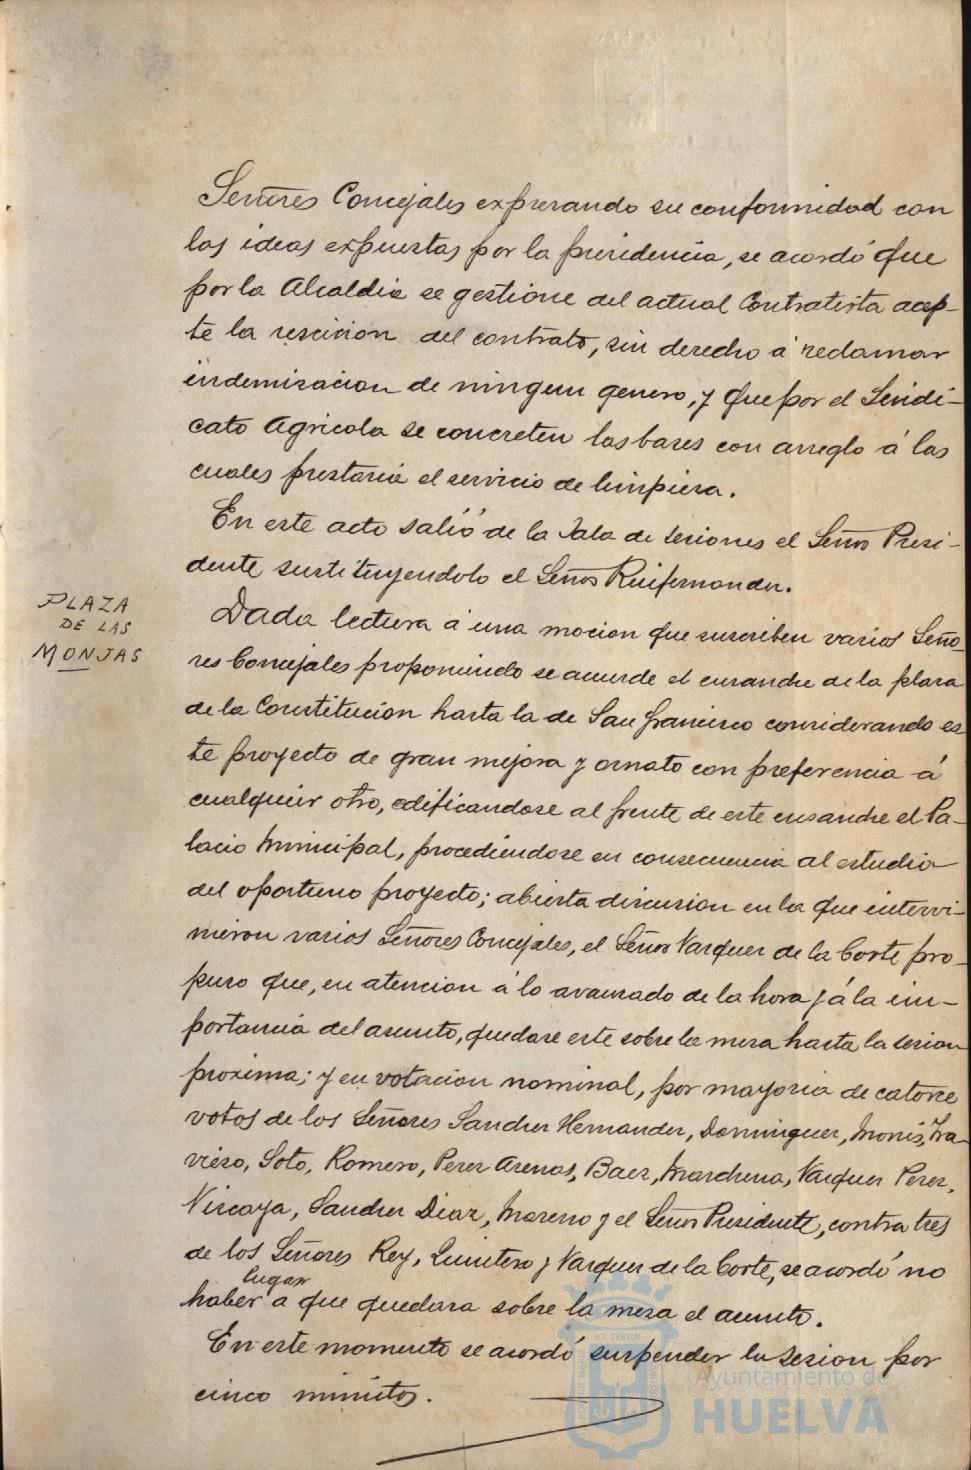 Señores Concejales expresando su conformidad con
las ideas expuestas por la presidencia, se acordó que
por la Alcaldia se gestione del actual Contratista acep-
te la rescicion del contrato, sin derecho á reclamar
indemisacion de ningun genero, y que por el Sindi-
cato Agricola se concreten las bases con arreglo á las
cuales prestaria el servicio de limpieza.
En este acto salió de la Sala de sesiones el Señor Presi-
dente sustituyendolo el Señor Ruifernandez.
PLAZA
DE LAS
MONJAS
Dada lectura á una mocion que suscriben varios Seño-
res Concejales proponiendo se acuerde el ensanche de la plaza
de la Constitucion hasta la de San Francisco considerando es-
te proyecto de gran mejora y ornato con preferencia á
cualquier otro, edificandose al frente de este ensanche el Pa-
lacio Municipal, procediendose en consecuencia al estudio
del oportuno proyecto; abierta discusion en la que intervi-
nieron varios Señores Concejales, el Señor Vazquez de la Corte pro-
puso que, en atencion á lo avanzado de la hora y á la im-
portancia del asunto, quedase este sobre la mesa hasta la sesion
proxima; y en votacion nominal, por mayoria de catorce
votos de los Señores Sanchez Hernandez, Dominguez, Monis, Tra-
vieso, Soto, Romero, Perez Arenas, Baez, Marchena, Vazquez Perez,
Viscaya, Sanchez Diaz, Moreno y el Señor Presidente, contra tres
de los Señores Rey, Quintero y Vazquez de la Corte, se acordó no
lugar
haber a que quedara sobre la mesa el asunto.
En este momento se acordó suspender la sesion por
cinco minutos.
Ayuntamiento de
HUELVA